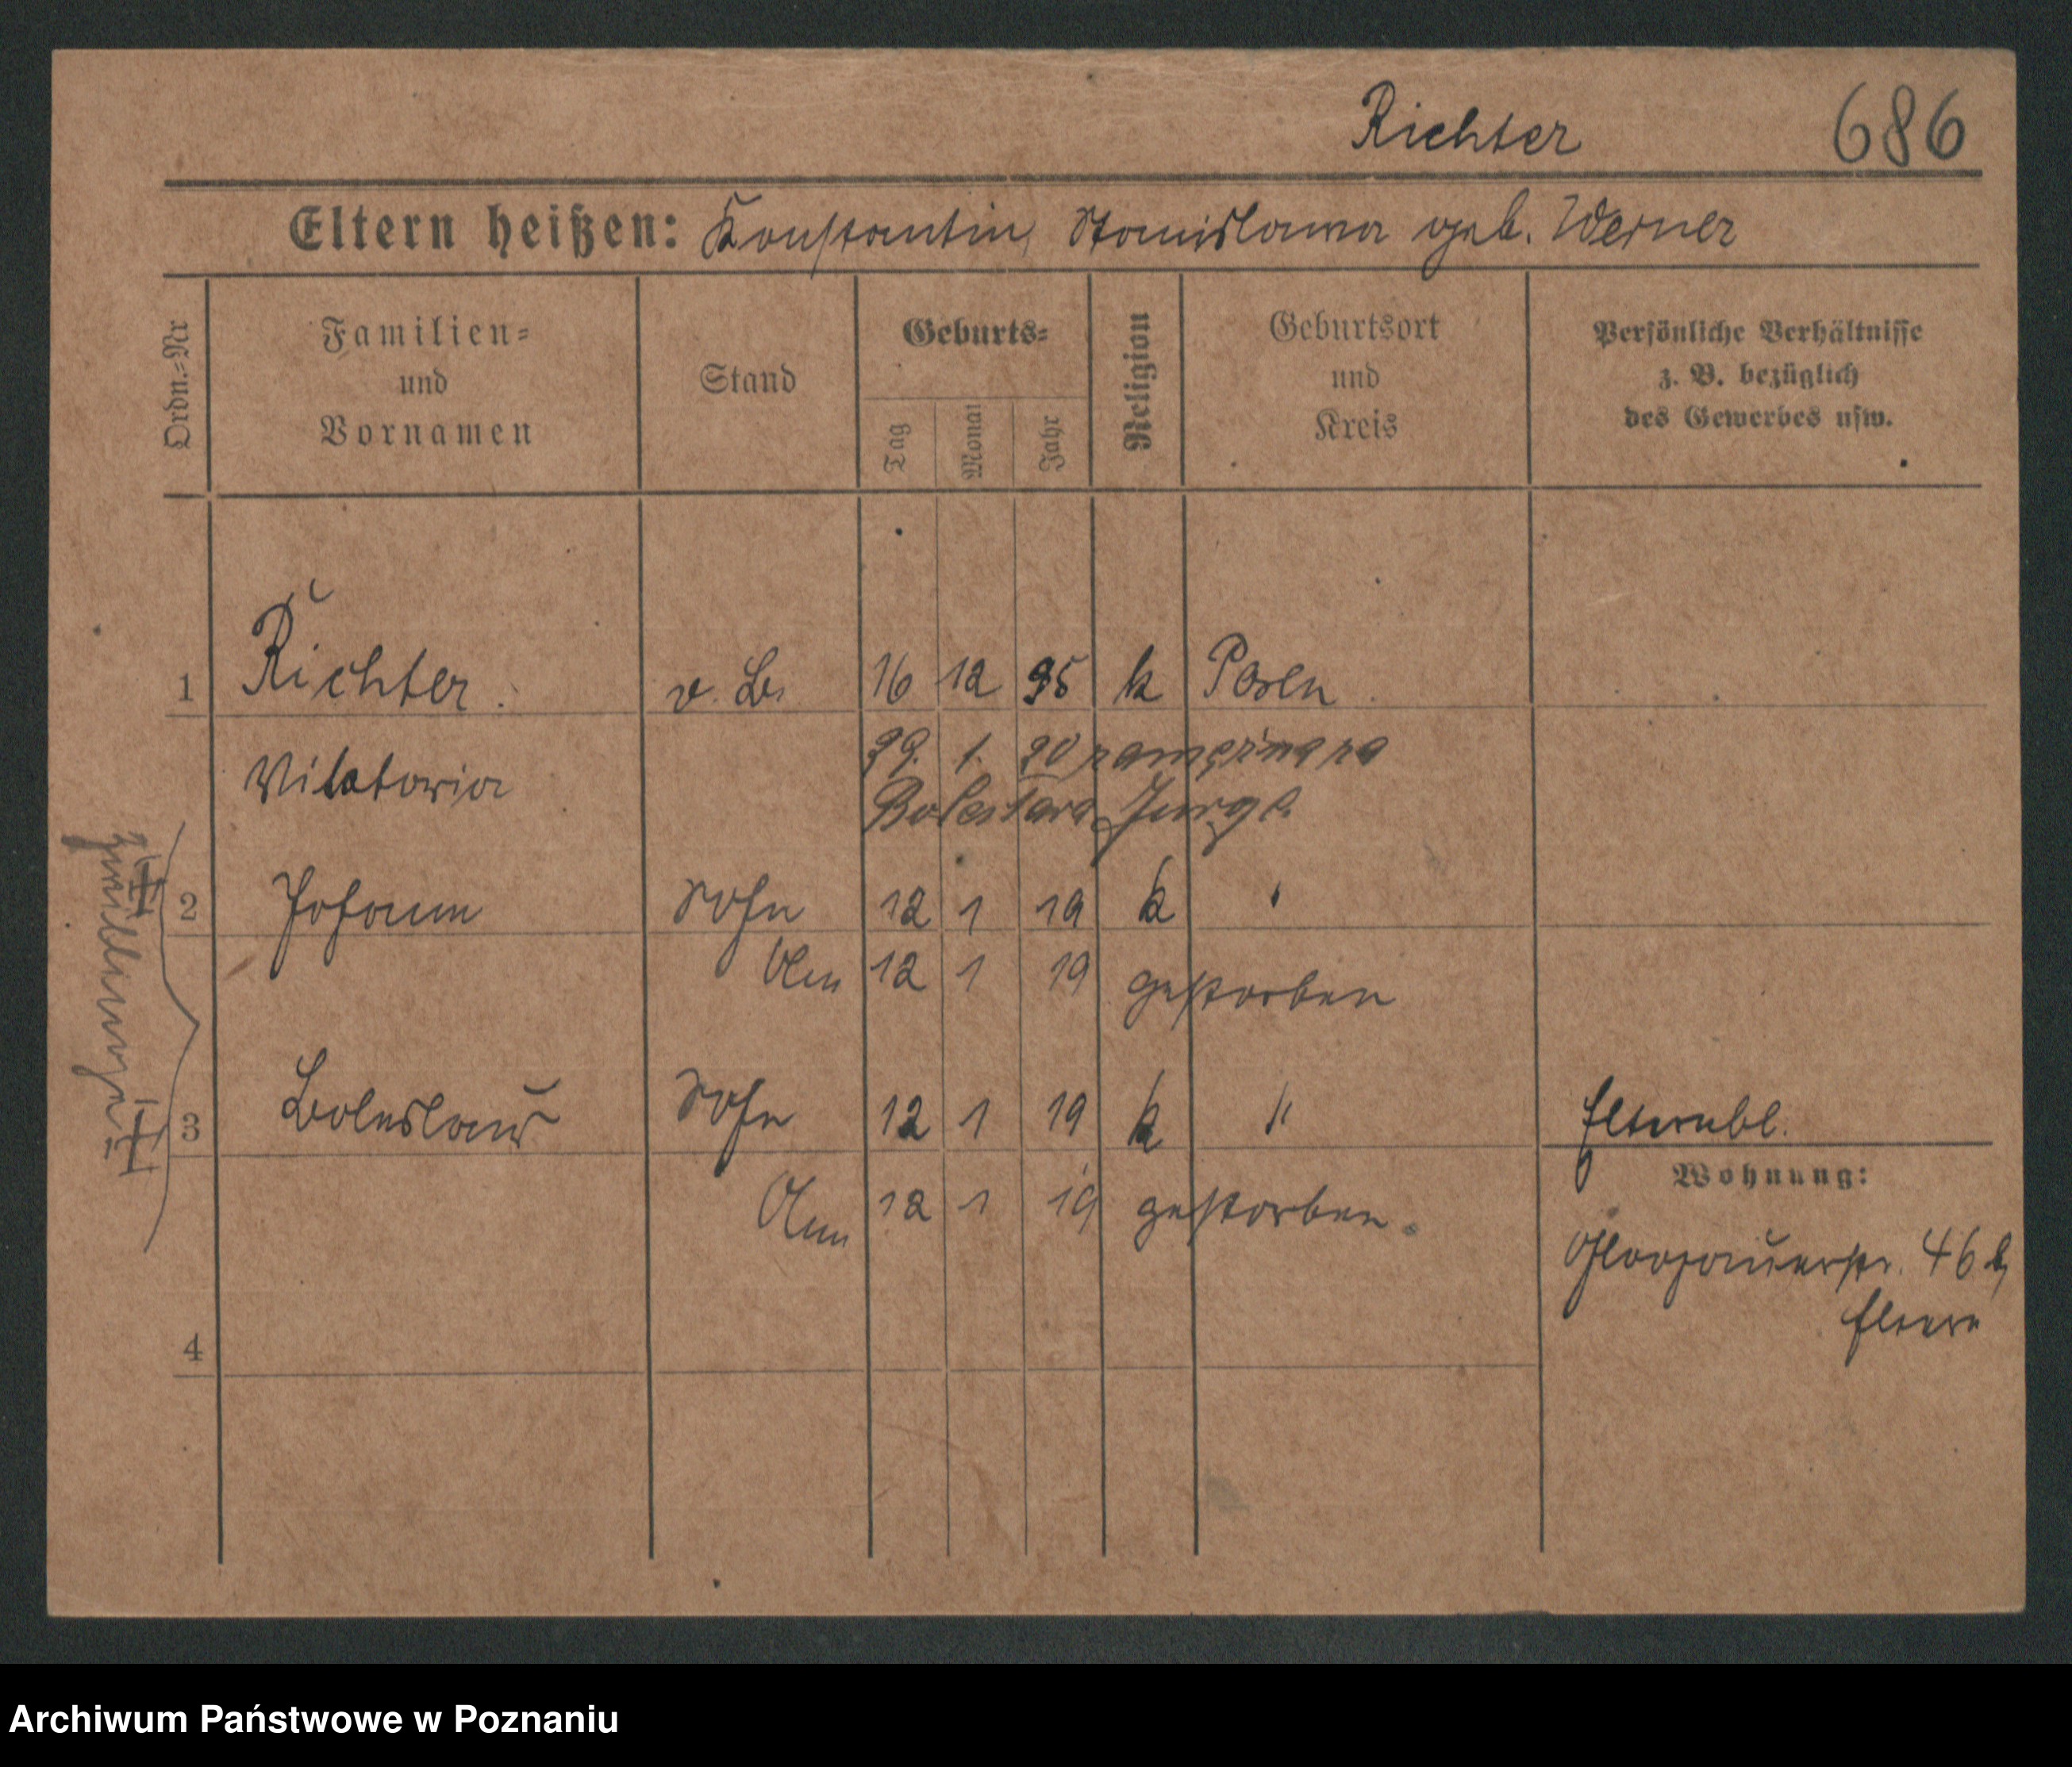 Richter 686
Eltern heißen: Konstantin, Stanislawa geb. Werner
Ordn.-Nr
Familien-
und
Vornamen
Stand
Geburts-
Tag
Monat
Jahr
Religion
Geburtsort
und
Kreis
Persönliche Verhältnisse
z. B. bezüglich
des Gewerbes usw.
1 Richter. 16 12 95 k Posen
Viktoria 1. 20 zamężna za
2 Johann Sohn 12 1 19 k "
Am 12 1 19 gestorben
3 Boleslaus Sohn 12 1 19 k " Elternbl.
Am 12 1 19 gestorben.
Zwillinge
Wohnung:
Glogauerstr. 46 b,
Eltern
4
Archiwum Państwowe w Poznaniu